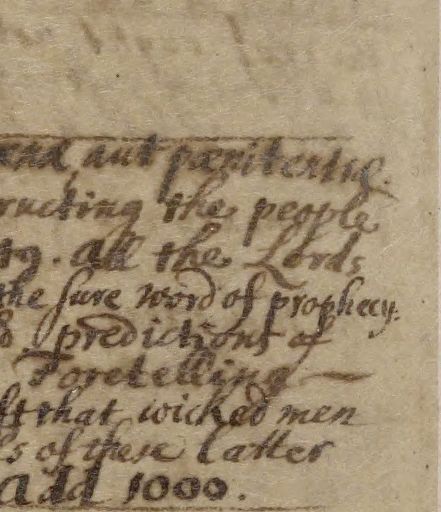 aut pœnitentiæ.
ructing the people
ty. all the Lords
the sure word of prophecy.
predictions of
Foretelling —
ft that wicked men
s of these latter
add 1000.